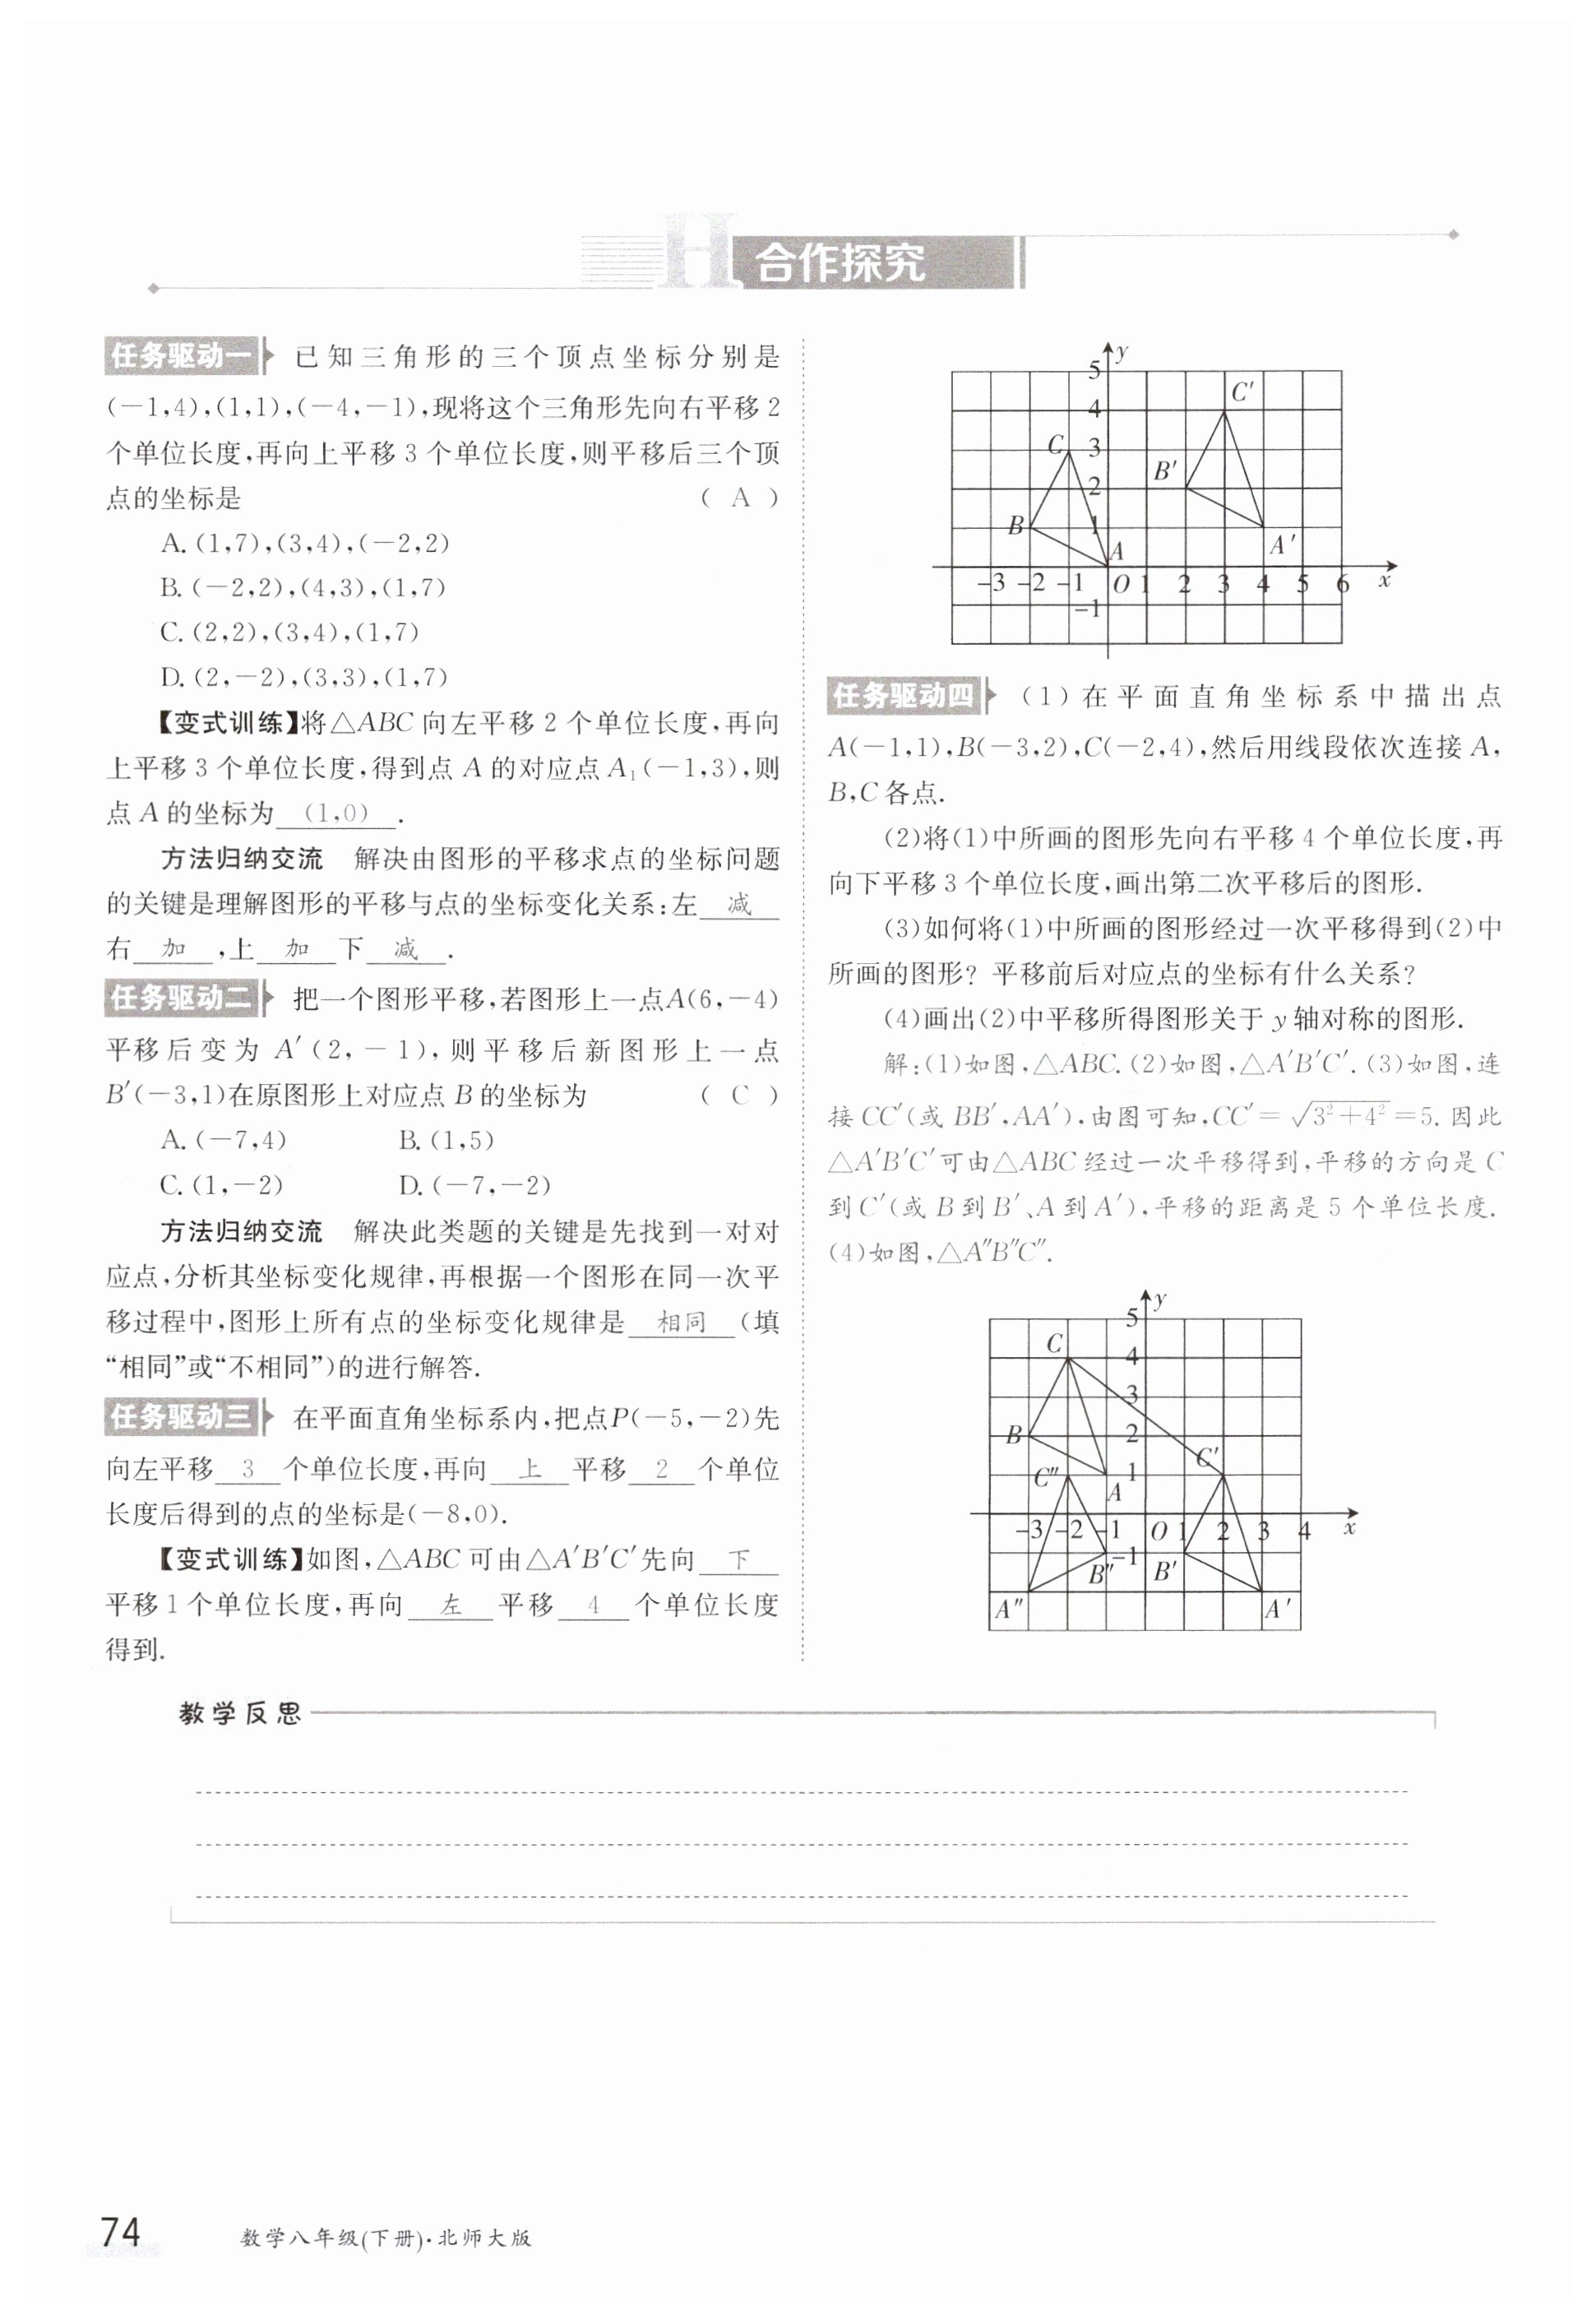 合作探究
任务驱动一 已知三角形的三个顶点坐标分别是
(-1,4),(1,1),(-4,-1),现将这个三角形先向右平移2
个单位长度,再向上平移3个单位长度,则平移后三个顶
点的坐标是 ( A )
A. (1,7),(3,4),(-2,2)
B. (-2,2),(4,3),(1,7)
C. (2,2),(3,4),(1,7)
D. (2,-2),(3,3),(1,7)
【变式训练】将△ABC向左平移2个单位长度,再向
上平移3个单位长度,得到点A的对应点A₁(-1,3),则
点A的坐标为 (1,0) .
方法归纳交流 解决由图形的平移求点的坐标问题
的关键是理解图形的平移与点的坐标变化关系:左 减
右 加 ,上 加 下 减 .
任务驱动二 把一个图形平移,若图形上一点A(6,-4)
平移后变为A′(2,-1),则平移后新图形上一点
B′(-3,1)在原图形上对应点B的坐标为 ( C )
A. (-7,4) B. (1,5)
C. (1,-2) D. (-7,-2)
方法归纳交流 解决此类题的关键是先找到一对对
应点,分析其坐标变化规律,再根据一个图形在同一次平
移过程中,图形上所有点的坐标变化规律是 相同 (填
“相同”或“不相同”)的进行解答.
任务驱动三 在平面直角坐标系内,把点P(-5,-2)先
向左平移 3 个单位长度,再向 上 平移 2 个单位
长度后得到的点的坐标是(-8,0).
【变式训练】如图,△ABC可由△A′B′C′先向 下
平移1个单位长度,再向 左 平移 4 个单位长度
得到.
y
5
C′
4
C 3
B′
2
B 1
A A′
-3 -2 -1 O 1 2 3 4 5 6 x
-1
任务驱动四 (1)在平面直角坐标系中描出点
A(-1,1),B(-3,2),C(-2,4),然后用线段依次连接A,
B,C各点.
(2)将(1)中所画的图形先向右平移4个单位长度,再
向下平移3个单位长度,画出第二次平移后的图形.
(3)如何将(1)中所画的图形经过一次平移得到(2)中
所画的图形?平移前后对应点的坐标有什么关系?
(4)画出(2)中平移所得图形关于y轴对称的图形.
解:(1)如图,△ABC. (2)如图,△A′B′C′. (3)如图,连
接CC′(或BB′,AA′),由图可知,CC′=√3²+4²=5. 因此
△A′B′C′可由△ABC经过一次平移得到,平移的方向是C
到C′(或B到B′、A到A′),平移的距离是5个单位长度.
(4)如图,△A″B″C″.
y
5
C
4
3
B 2
C′
C″ A 1
-3 -2 -1 O 1 2 3 4 x
-1
B″ B′
A″ A′
教学反思
74 数学八年级(下册)·北师大版